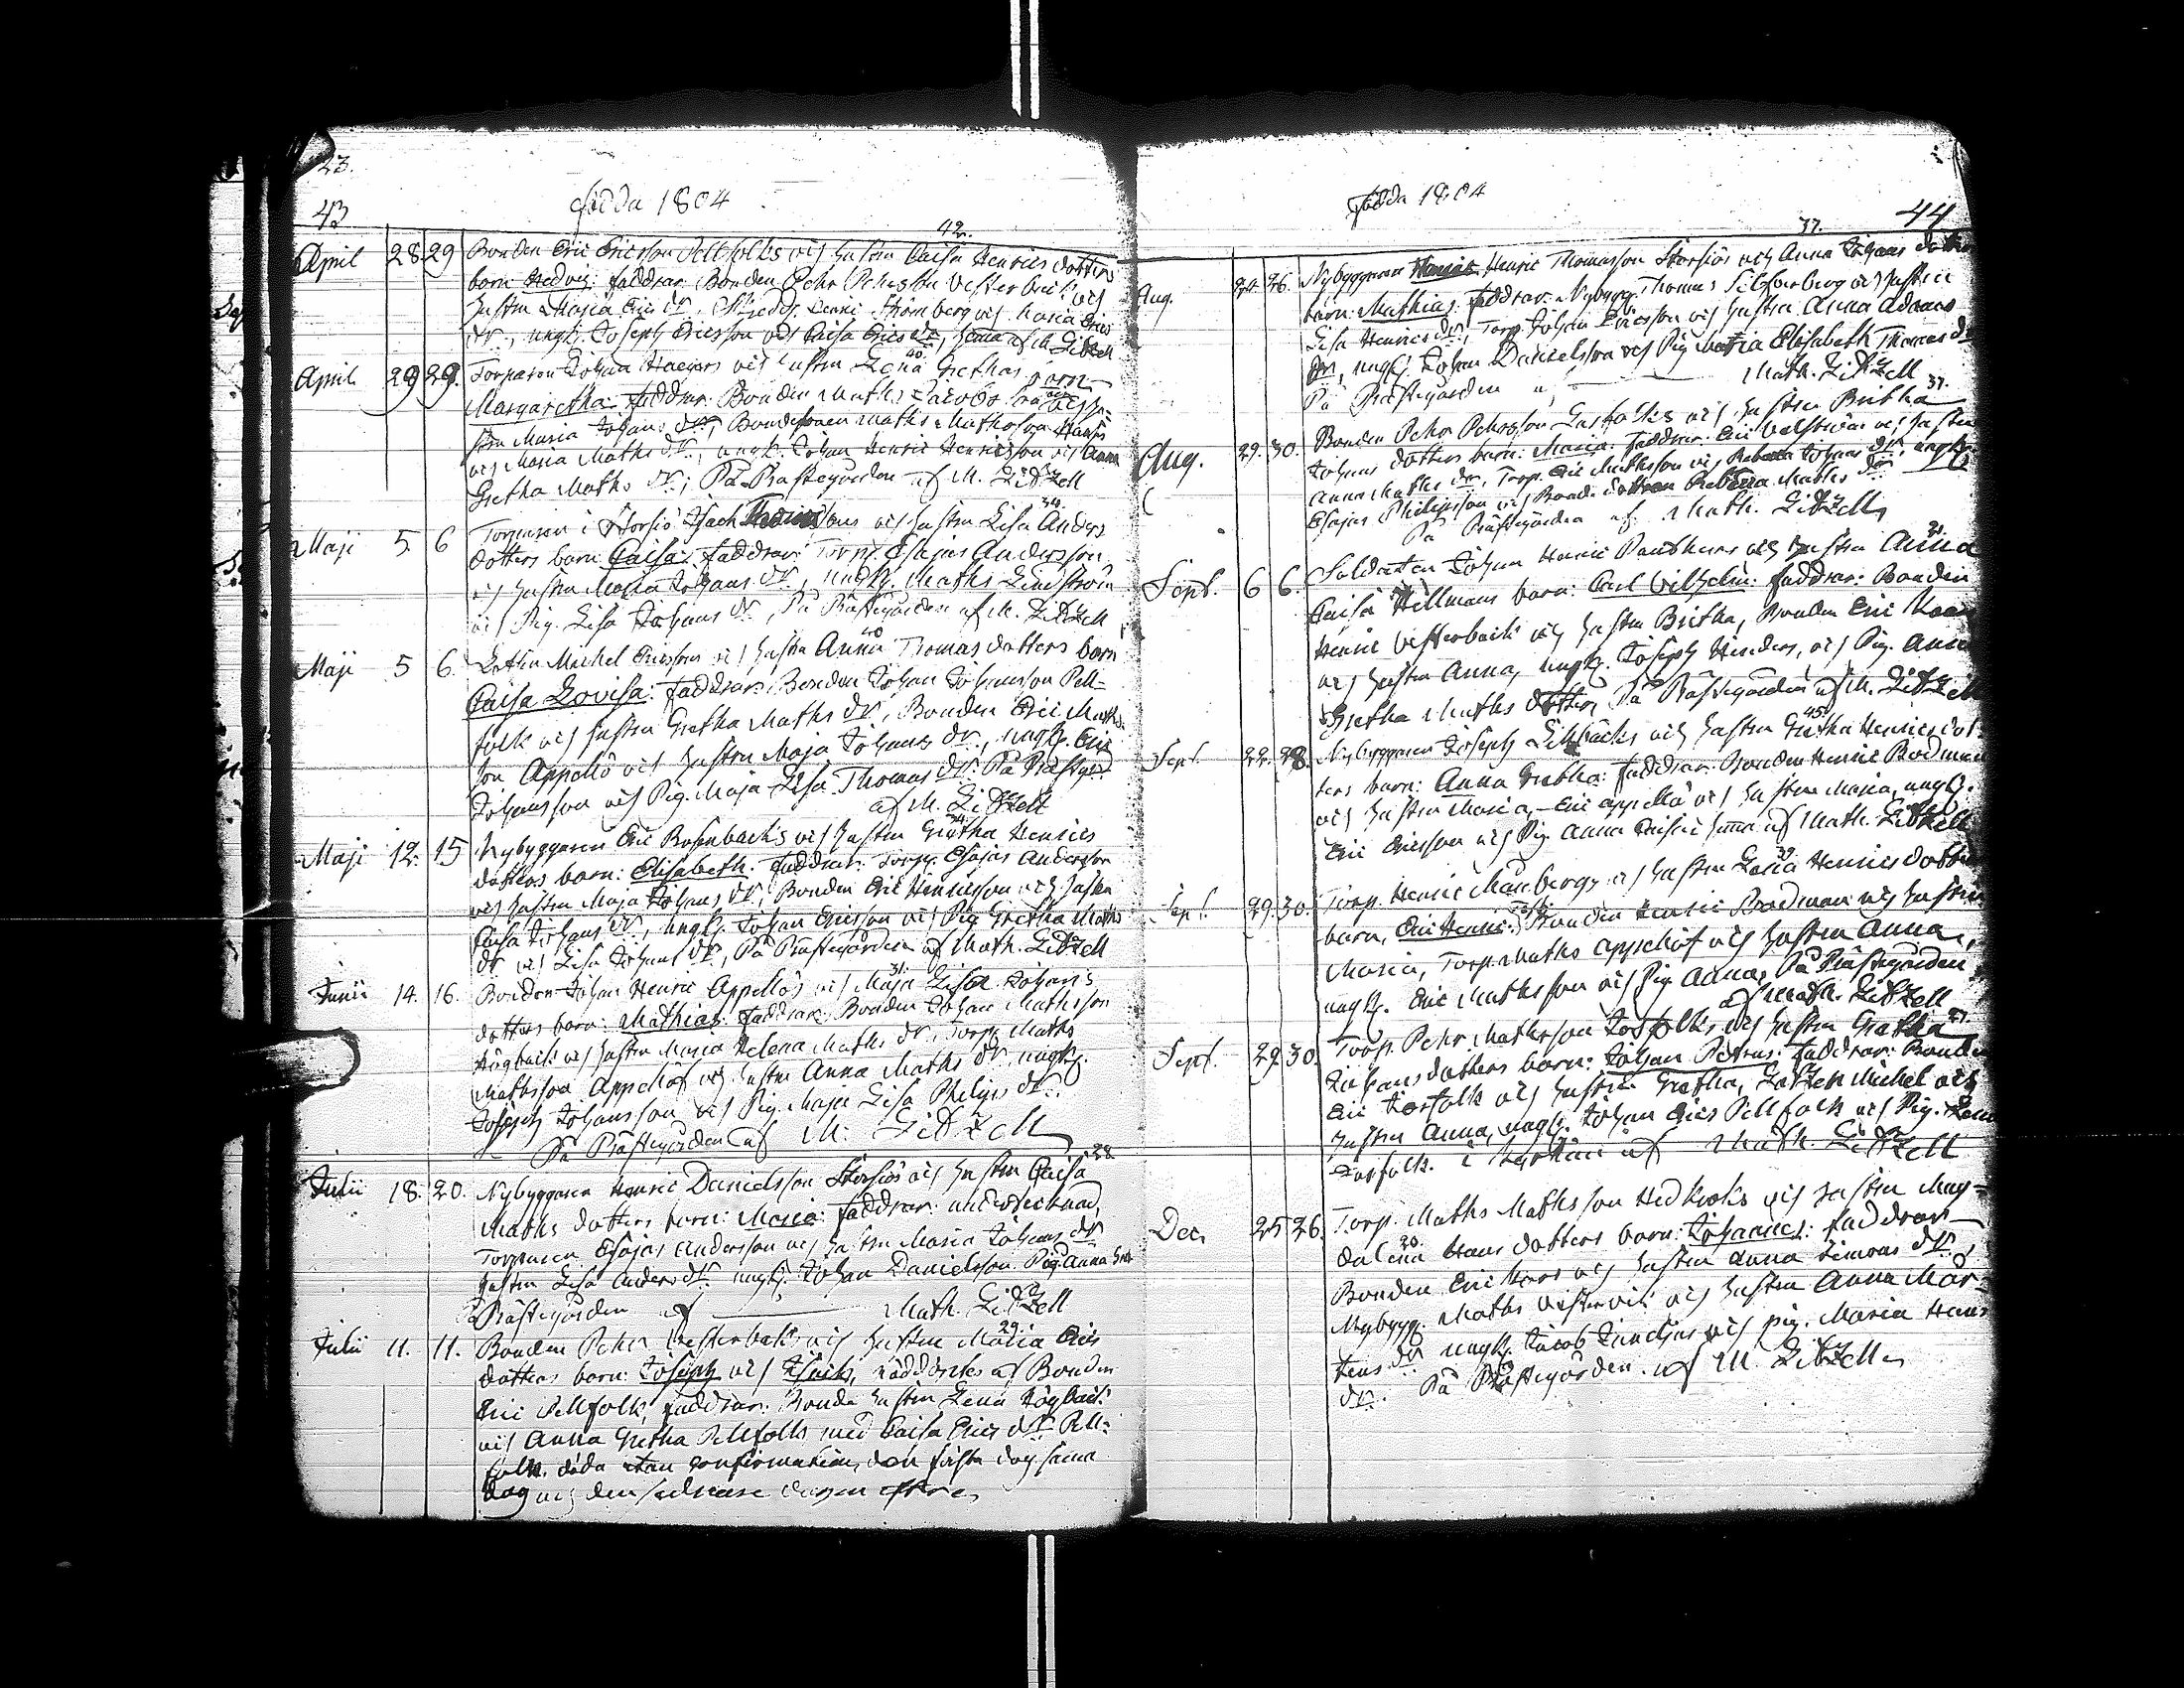 23.
43
födda 1804
42.
April 28 29 Bonden Eric Ericsson Pellfolks och hustru Caisa Henrics dotters
barn Hedvig: faddrar: Bonden Pehr Pehrsson Vesterback och
hustru Maria Erics dr, Henric Strömberg och Maria Erics
dr, ungk. Joseph Ericsson och Caisa Erics dr, hema af M. Litzell
40.
April 29 29. Torparen Johan Hagers och hustru Lena Grethas barn
Margaretha: faddrar: Bonden Maths Jacobs son och hu-
stru Maria Johans dr, Bondesonen Maths Mathsson
och Maria Maths dr, ungk. Johan Henric Henricsson och Anna
Gretha Maths dr, På Prästegården af M. Litzell
34.
Maji 5 6 Torparen i Storsjö Isach och hustru Lisa Anders
dotters barn Caisa: faddrar: Torp. Esajas Andersson
och hustru Maria Johans dr, ungk. Maths Lindström
och Pig. Lisa Johans dr, På Prästegården af M. Litzell
40
Maji 5 6. Michel Ericsson och hustru Anna Thomas dotters barn
Caisa Lovisa: faddrar: Bonden Johan Johansson Pell-
folk och hustru Gretha Maths dr, Bonden Eric Maths
son Appellö och hustru Maja Johans dr, ungk. Eric
Johansson och Pig. Maja Lisa Thomas dr. På Prästgård
af M. Litzell
34.
Maji 12. 15 Nybyggaren Eric Rosenbacks och hustru Gretha Henrics
dotters barn: Elisabeth. faddrar: Torp. Esajas Andersson
och hustru Maja Johans dr, Bonden Eric Henricsson och hustru
Caisa Johans dr, ungk. Johan Ericsson och Pig Gretha Maths
dr och Lisa Johans dr, På Prästegården af Math. Litzell
31.
Junii 14. 16. Bonden Johan Henric Appellös och Maja Lisa Johans
dotters barn: Mathias: faddrar: Bonden Johan Mathsson
Högback och hustru Maria Helena Maths dr, Torp. Maths
Mathsson Appellöf och hustru Anna Maths dr, ungk.
Joseph Johansson och Pig. Maja Lisa Philips dr.
På Prästegården af M. Litzell
28
Julii 18. 20. Nybyggaren Henric Danielsson Storsjös och hustru Caisa
Maths dotters barn: Maria: faddrar: undertecknad,
Torparen Esajas Andersson och hustru Maria Johans dr
hustru Lisa Anders dr. ungk. Johan Danielsson. Pig. Anna
På Prästegården af Math. Litzell
29.
Julii 11. 11. Bonden Pehr Vesterbacks och hustru Maria Erics
dotters barn: Joseph och Isach, nöddöptes af Bonden
Eric Pellfolk, faddrar: Bonde hustru Lena Högback
och Anna Gretha Pellfolk med Caisa Erics dr Pell-
folk. döda utan confirmation, den första dog samma
dag och den sednare dagen efter
födda 1804
44
37.
Aug. 24. 26. Nybyggaren Henric Thomasson Storsjös och Anna Johans dotters
barn: Mathias: faddrar: Nybygg. Thomas Silfverberg och hustru
Lisa Henrics dr, Torp. Johan Ericsson och hustru Anna Adams
dr, ungk. Johan Danielsson och Pig Maria Elisabeth Thomas dr
På Prästegården af Math. Litzell
37.
Aug. 29. 30. Bonden Pehr Pehrsson och hustru Britha
Johans dotters barn: Maria: faddrar: Eric och hustru
Anna Maths dr, Torp. Eric Mathsson och Rebecca Johans dr, ungk.
Esajas Philipsson och Bond. dottren Rebecca Maths dr
På Prästegården af Math. Litzell
31.
Sept. 6 6. Soldaten Johan Henric och hustru Anna
Caisa Hellmans barn: Carl Vilhelm: faddrar: Bonden
Henric Vesterback och hustru Britha, Bonden Eric
och hustru Anna, ungk. Joseph Hinders, och Pig. Anna
Gretha Maths dotter, På Prästegården af M. Litzell
45.
Sept. 22. 28. Nybyggaren Joseph och hustru Gretha Henrics dot-
ters barn: Anna Gretha: faddrar: Bonden Henric Bodman
och hustru Maria, Eric Appellö och hustru Maria, ungk.
Eric Ericsson och Pig Anna Caisa hema af Math. Litzell
39.
Sept. 29. 30. Torp. Henric och hustru Maria Henrics dotters
barn, Eric Henric: Bonden Henric Bodman och hustru
Maria, Torp. Maths Appellöf och hustru Anna,
ungk. Eric Mathsson och Pig. Anna, På Prästegården
af Math. Litzell
27.
Sept. 29. 30. Torp. Pehr Mathsson och hustru Gretha
Johans dotters barn: Johan Petrus: faddrar: Bonden
Eric och hustru Gretha, Michel och
hustru Anna, ungk. Johan Erics Pellfolk och Pig. Lena
i kyrkan af Math. Litzell
Dec. 25 26. Torp. Maths Mathsson och hustru Mag-
20.
dalena Hans dotters barn: Johannes: faddrar
Bonden Eric och hustru Anna Simons dr,
Nybygg. Maths Vestervik och hustru Anna Mår-
tens dr ungk. Jacob och pig. Maria Hans
dr. På Prästegården. af M. Litzell